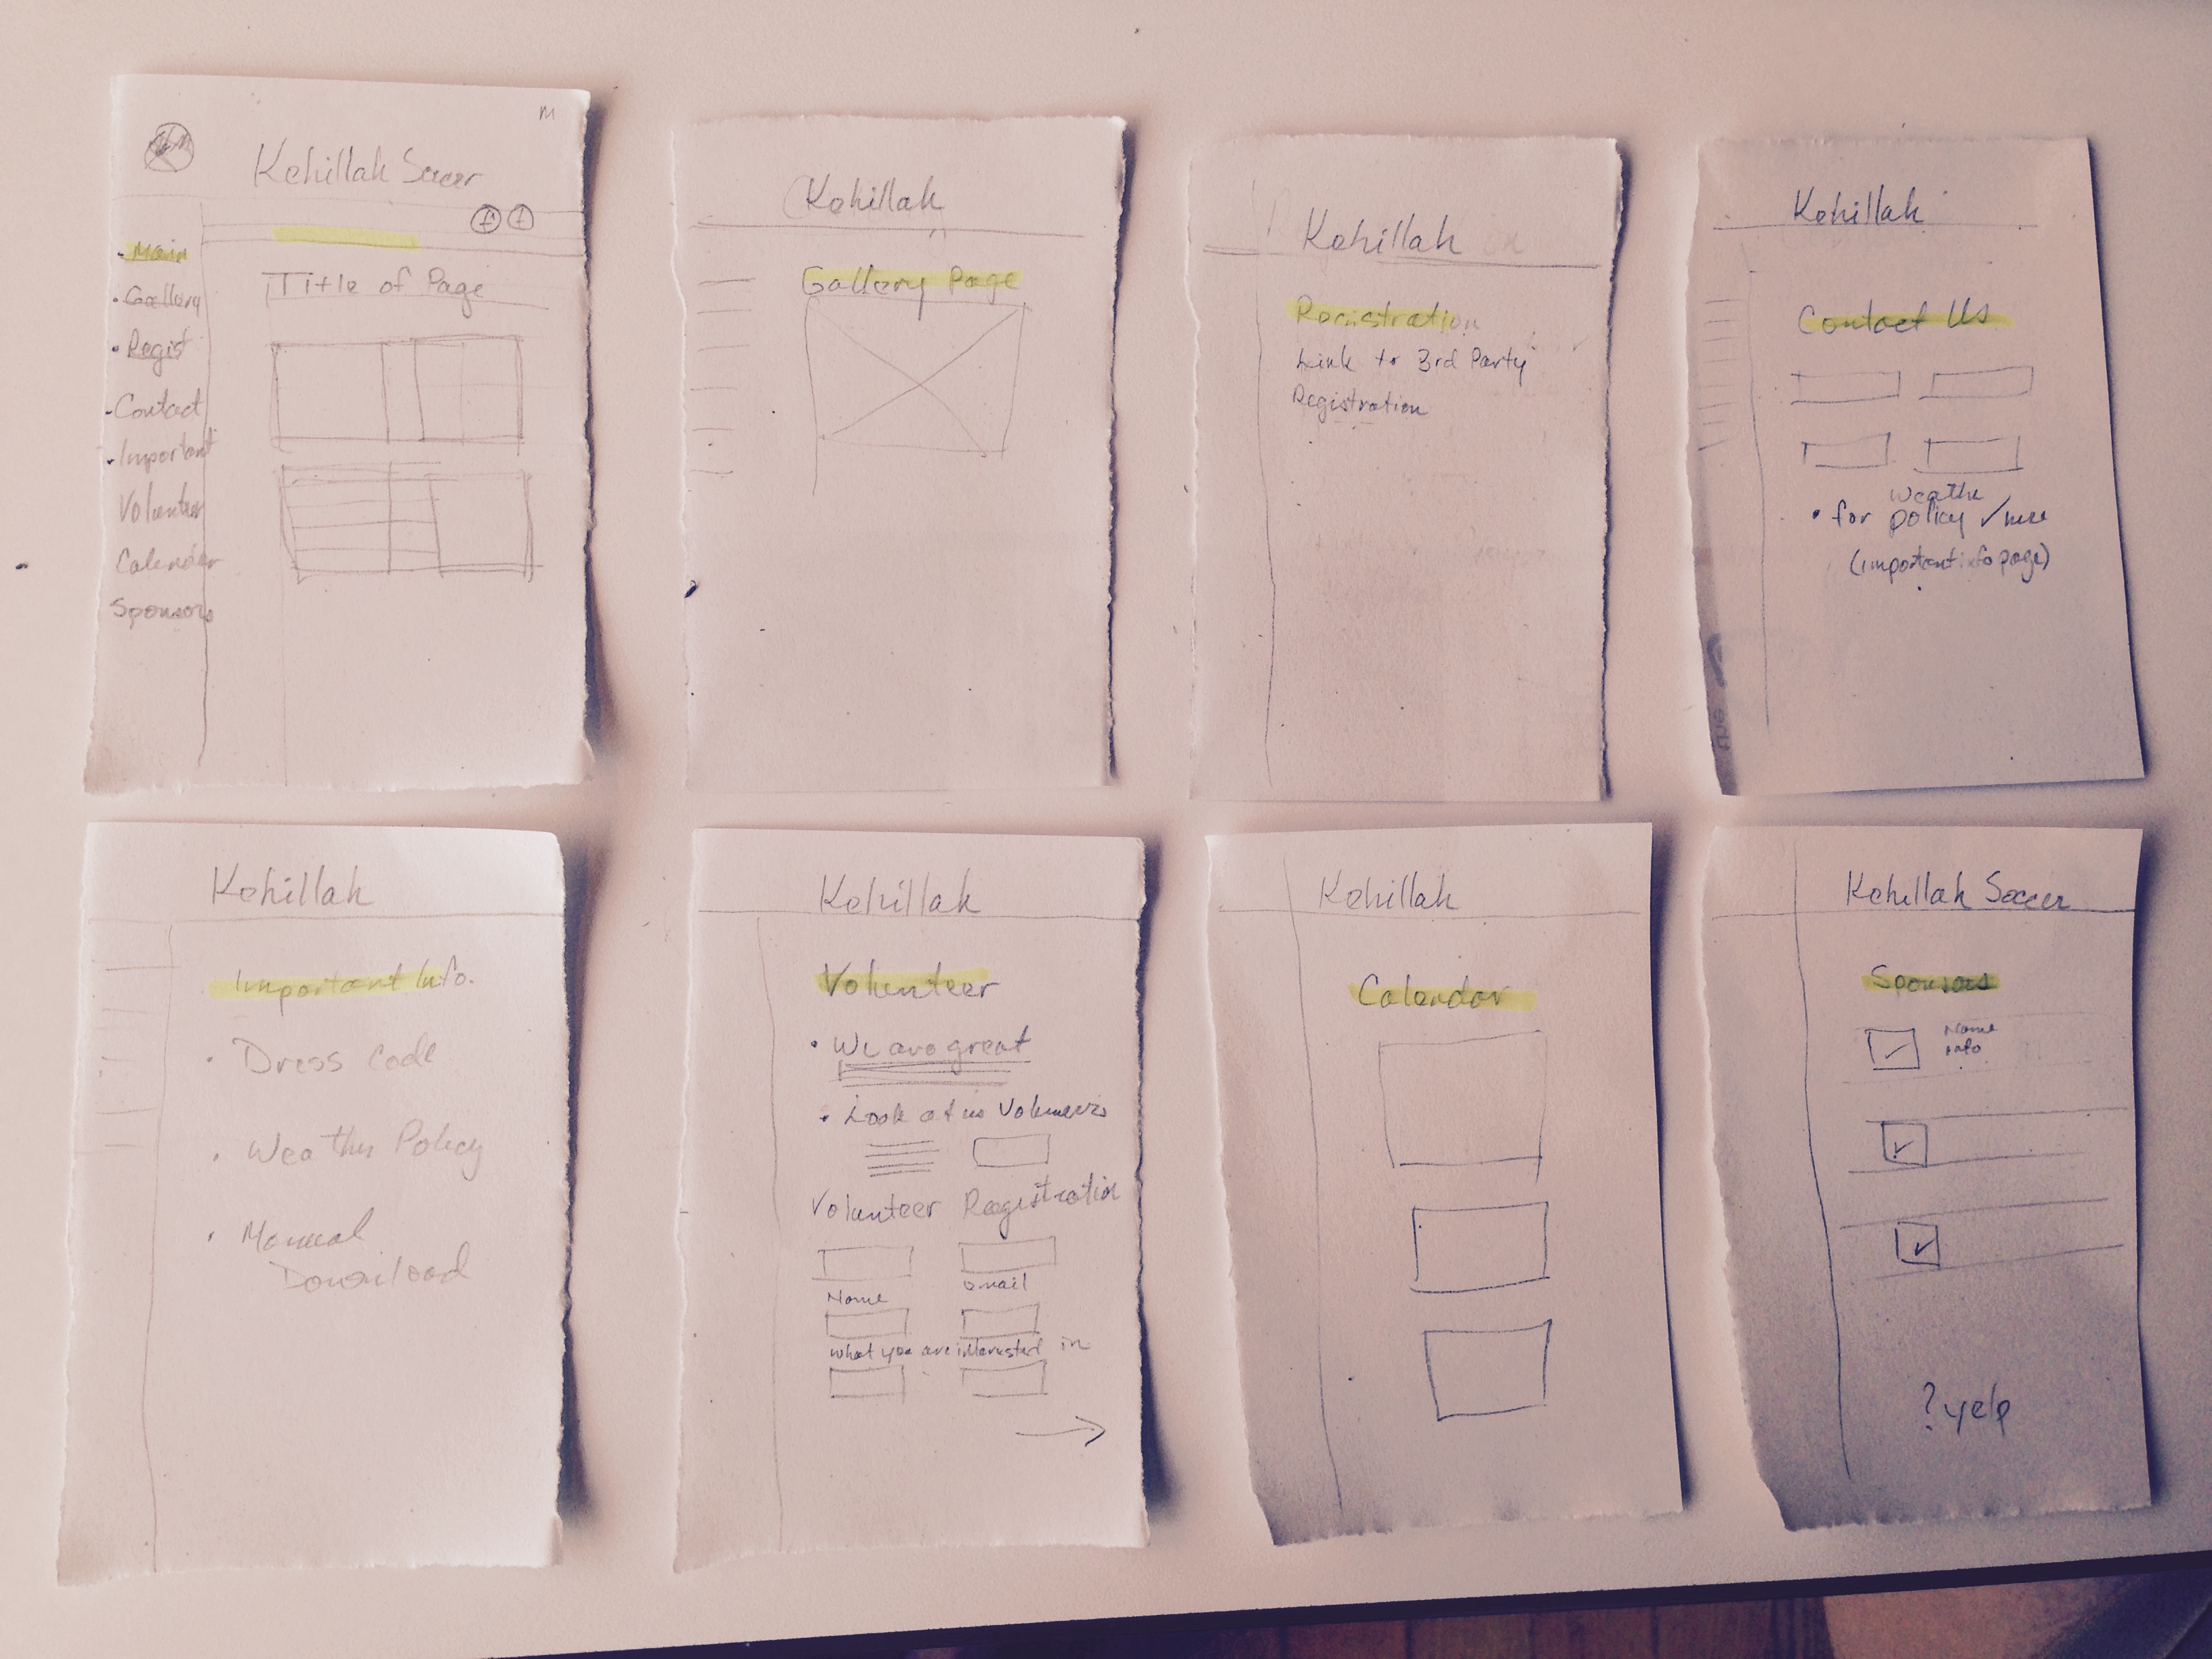 M
Kehillah Soccer
f t
Main
Gallery
Regist
Contact
Important
Volunteer
Calendar
Sponsors
Title of Page
Kehillah
Gallery Page
Kehillah
Registration
Link to 3rd Party
Registration
Kehillah
Contact Us
weathe
• for policy ✓ here
(important info page)
Kehillah
Important Info.
• Dress Code
• Weather Policy
• Manual
Download
Kehillah
Volunteer
• We are great
• Look at us Volunteers
Volunteer Registration
Name
email
what you are interested in
Kehillah
Calendar
Kehillah Soccer
Sponsors
Name
info
? yelp